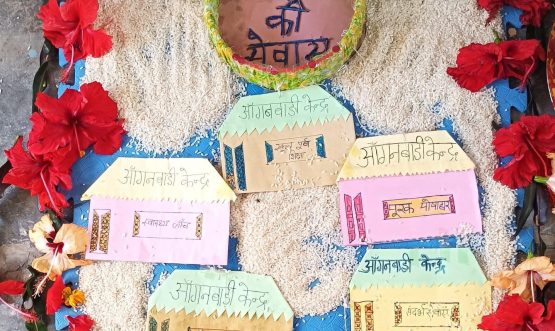 की
सेवाएं
आँगनबाडी केन्द्र
स्कूल पूर्व
शिक्षा
आँगनबाडी केन्द्र
स्वास्थ्य जाँच
आँगनबाडी केन्द्र
पूरक पोषाहार
आँगनबाडी केन्द्र
आँगनबाडी केन्द्र
संदर्भ सेवाएं